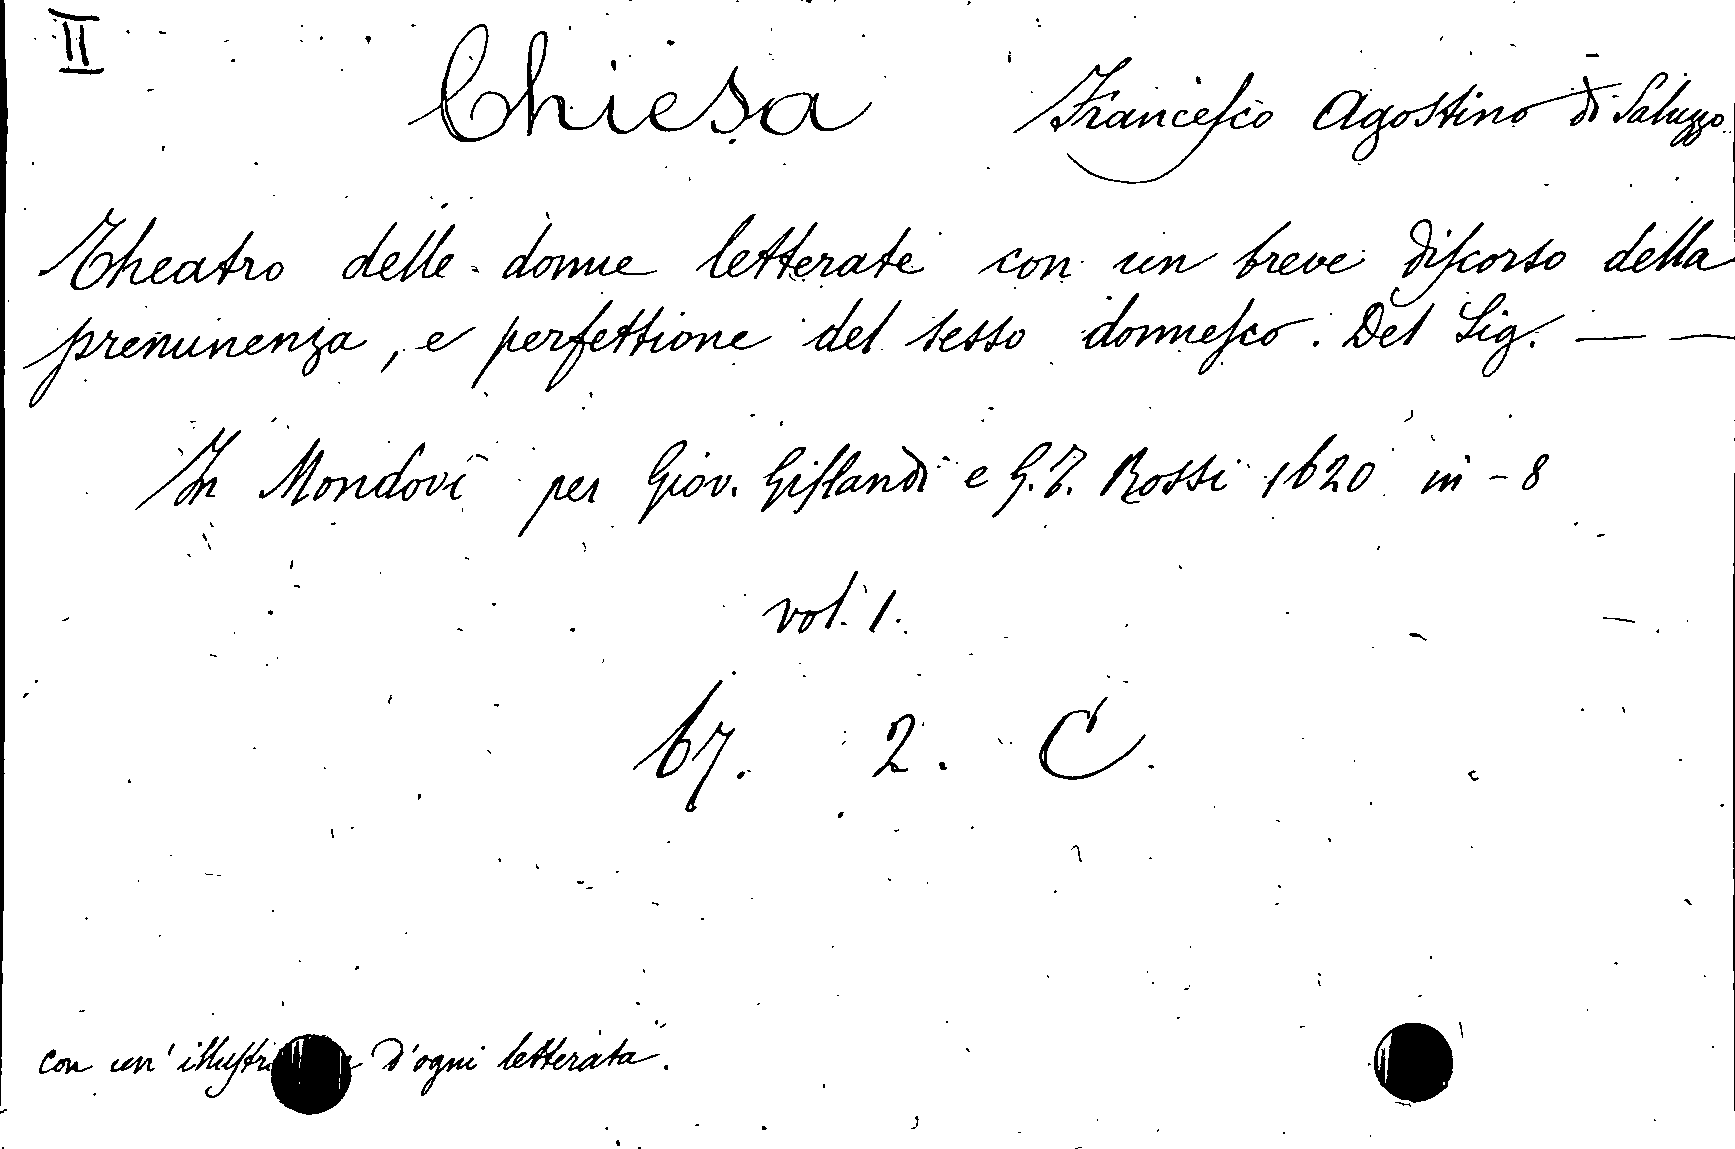 II
Chiesa Francesco Agostino di Saluzzo
Theatro delle donne letterate con un breve discorso della
preminenza, e perfettione del sesso donnesco. Del Sig. — —
In Mondovì per Giov. Gislandi e G.T. Rossi 1620 in-8
vol. 1.
67. 2. C.
con un' d'ogni letterata.